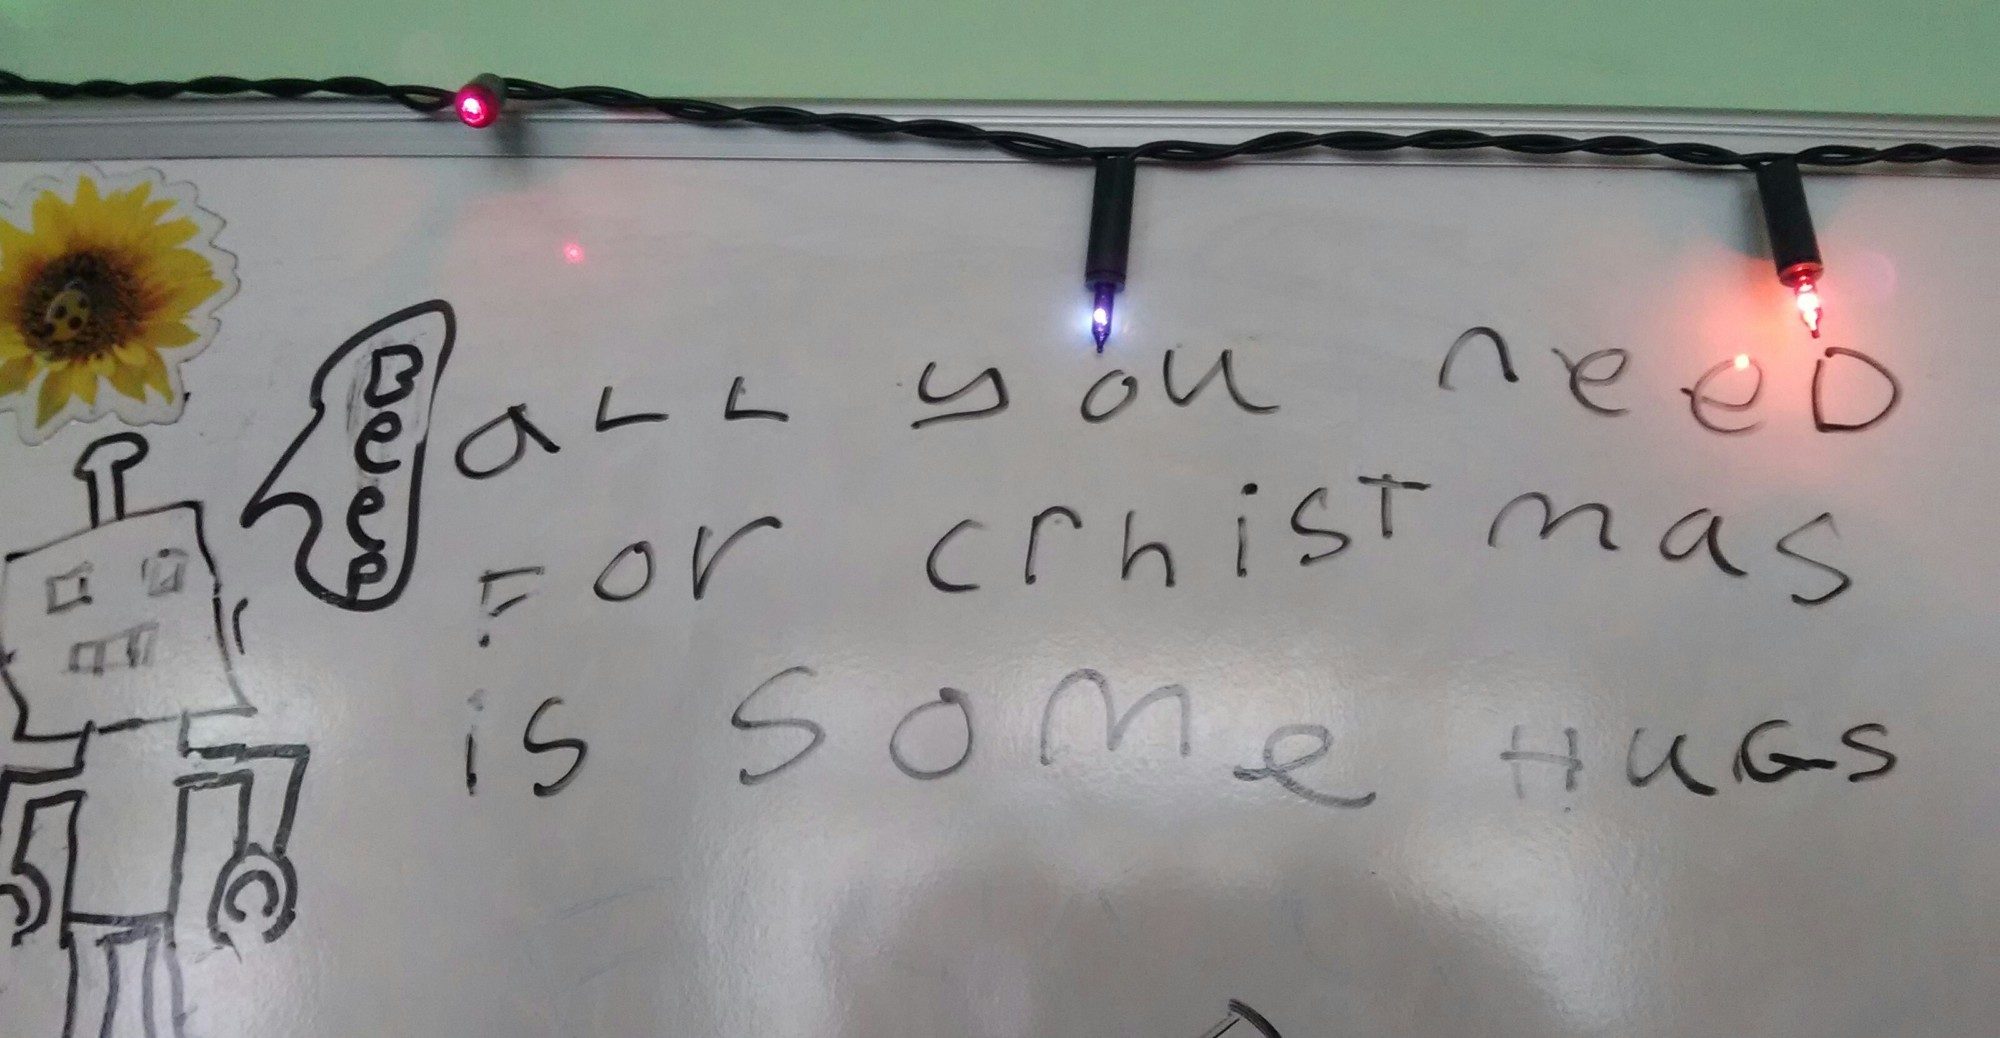 Beeep
aLL you neeD
For crhisTmas
is some HUGS